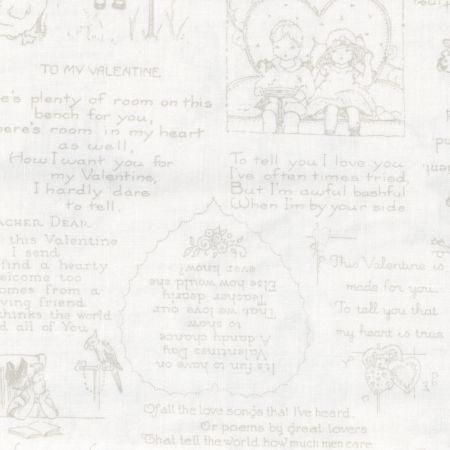 TO MY VALENTINE
plenty of room on this
bench for you,
room in my heart
as well,
How I want you for
my Valentine,
I hardly dare
to tell.
To tell you I love you
I've often times tried,
But I'm awful bashful
When I'm by your side
DEAR
this Valentine
I send
find a hearty
too
from a
friend
thinks the world
all of You
It's fun to have on
Valentines Day
A dandy chance
to show
That we love our
Teacher dearly
Else how would she
ever know?
This Valentine is
made for you.
To tell you that
my heart is true
Of all the love songs that I've heard.
Or poems by great lovers
That tell the world, how much men care